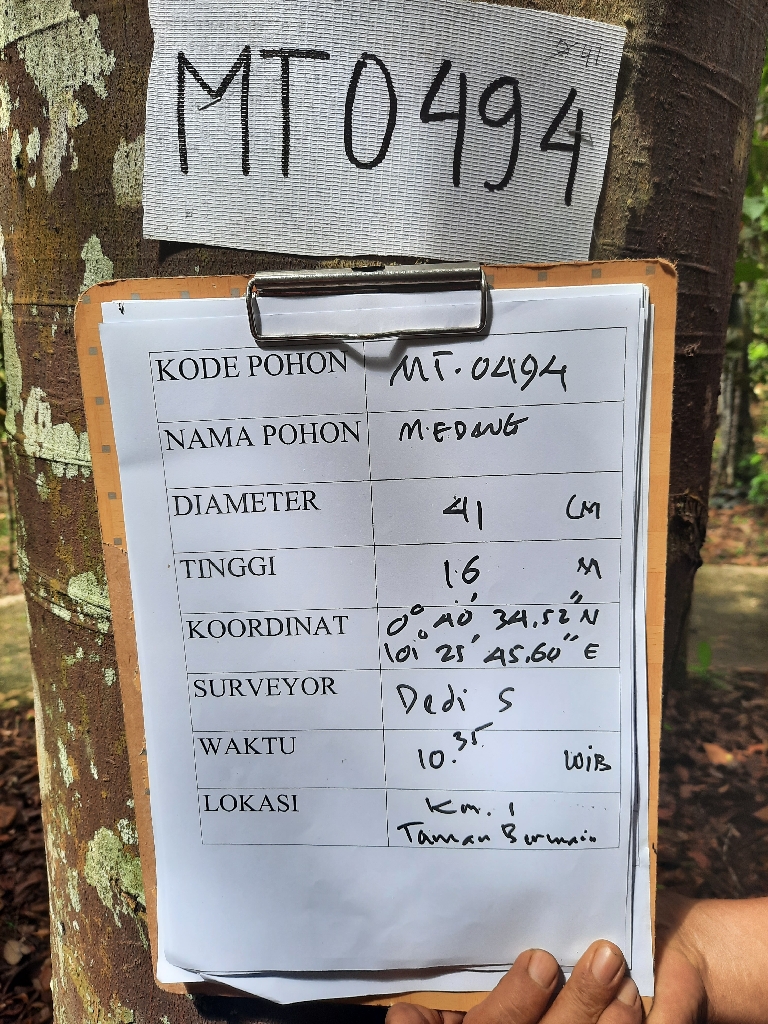 D 41
MT0494
KODE POHON MT.0494
NAMA POHON MEDANG
DIAMETER 41 CM
TINGGI 16 M
KOORDINAT 0° 40' 34.52" N
101° 25' 45.60" E
SURVEYOR Dedi S
WAKTU 10.35 WIB
LOKASI Km. 1
Taman Bermain